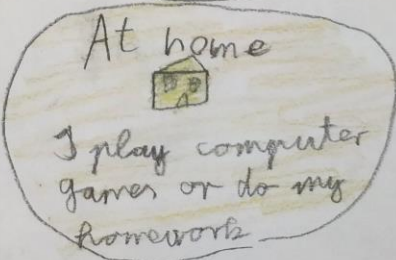 At home
I play computer
games or do my
homework